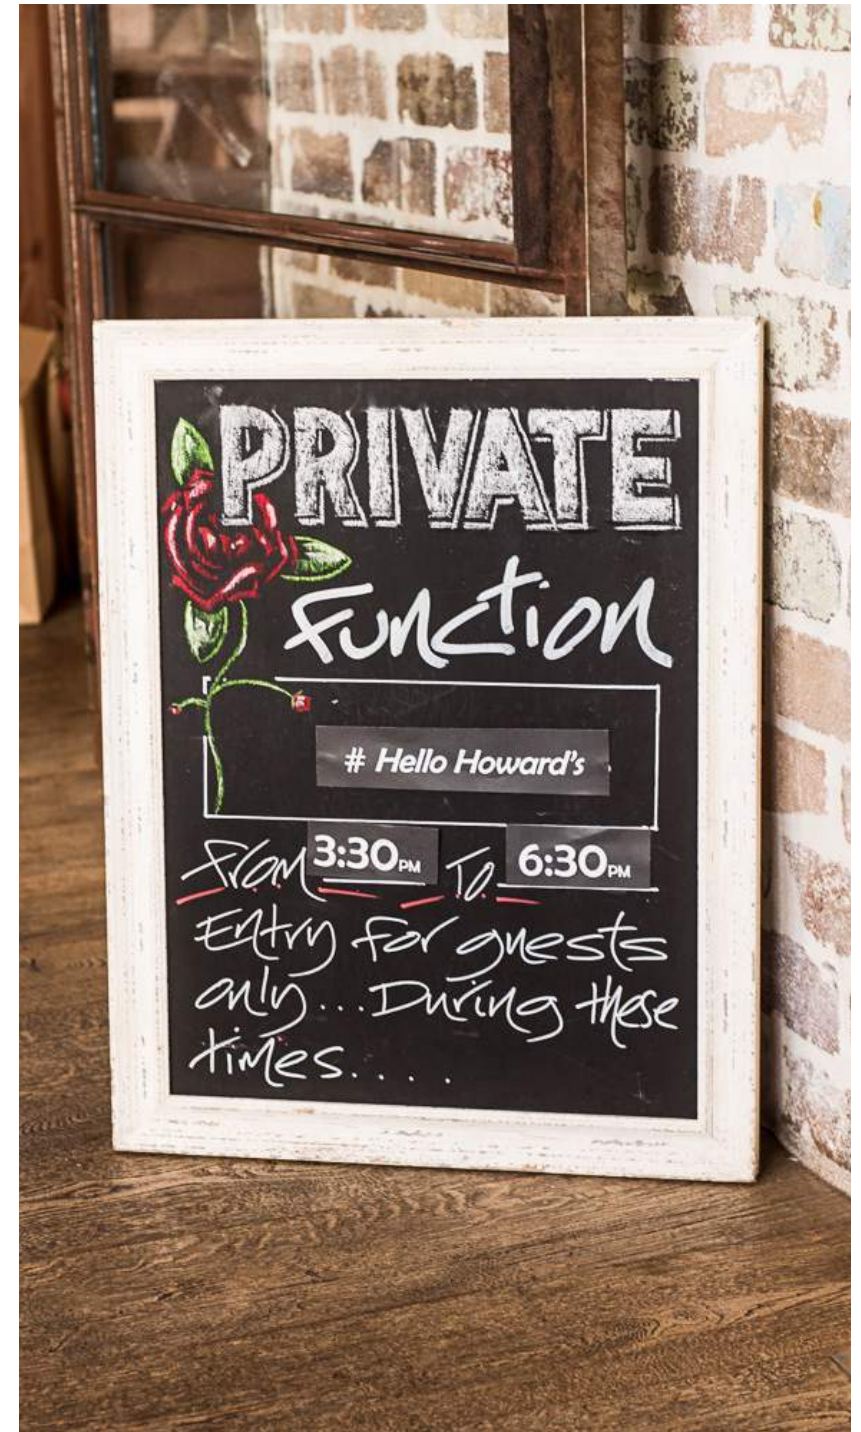 PRIVATE
Function
# Hello Howard's
From 3:30PM To 6:30PM
Entry for guests
only...During these
times.....